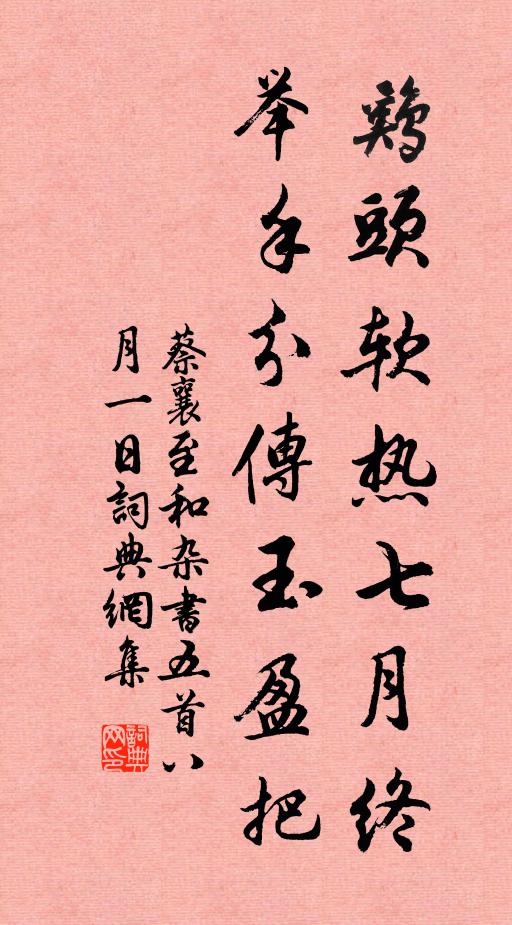 鷄頭软热七月终
举手分傳玉盈把
蔡襄至和杂書五首八
月一日詞典網集
詞典网印